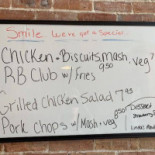 Smile, we've got a Special
Chicken + Biscuit Smash + veg 9.50
RB Club w/ Fries
Grilled Chicken Salad 7.95
Pork Chops w/ Mash + veg 8.50
Dessert